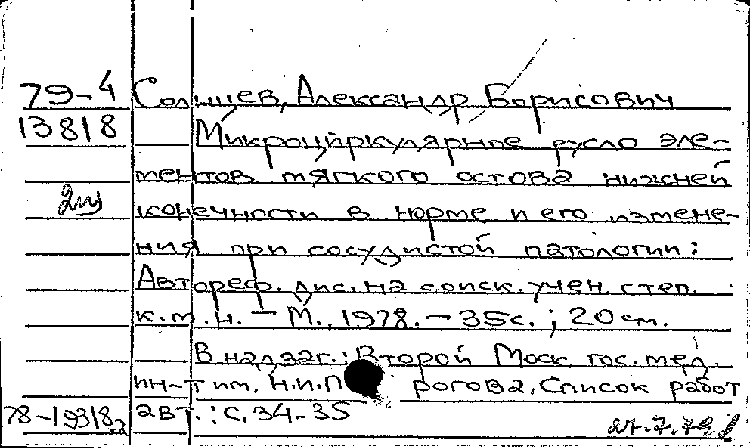 79-4 Солнцев, Александр Борисович
13818 Микроциркулярное русло эле-
ментов мягкого остова нижней
конечности в норме и его измене-
ния при сосудистой патологии:
Автореф. дис. на соиск. учен. степ.
к.м.н. - М., 1978. - 35с.; 20см.
В надзаг.: Второй Моск. гос. мед.
ин-т им. Н.И.П рогова. Список работ
авт.: с. 34-35